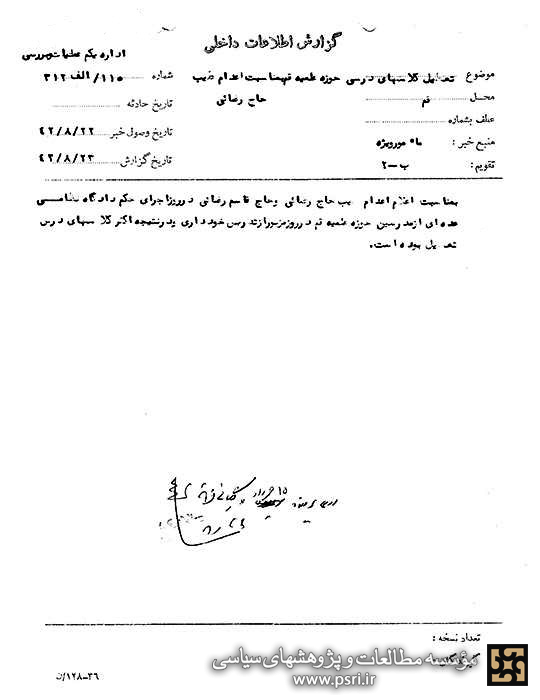 گزارش اطلاعات داخلی
اداره یکم عملیات و بررسی
موضوع تعطیل کلاسهای درسی حوزه علمیه قم بمناسبت اعدام طیب
حاج رضائی
شماره ۳۱۲ الف/۱۱۵
محل قم
تاریخ حادثه
عطف بشماره
تاریخ وصول خبر ۴۲/۸/۲۲
منبع خبر : مأمور ویژه
تاریخ گزارش ۴۲/۸/۲۳
تقویم : ب-۲
بمناسبت اعلام اعدام طیب حاج رضائی و حاج قاسم رضائی در روز اجرای حکم دادگاه نظامی
عده ای از مدرسین حوزه علمیه قم در روز مزبور از تدریس خودداری و در نتیجه اکثر کلاسهای درس
تعطیل بوده است.
۱۵ خرداد
تعداد نسخه :
مؤسسه مطالعات و پژوهشهای سیاسی
www.psri.ir
۳۶-۱۲۸/ن